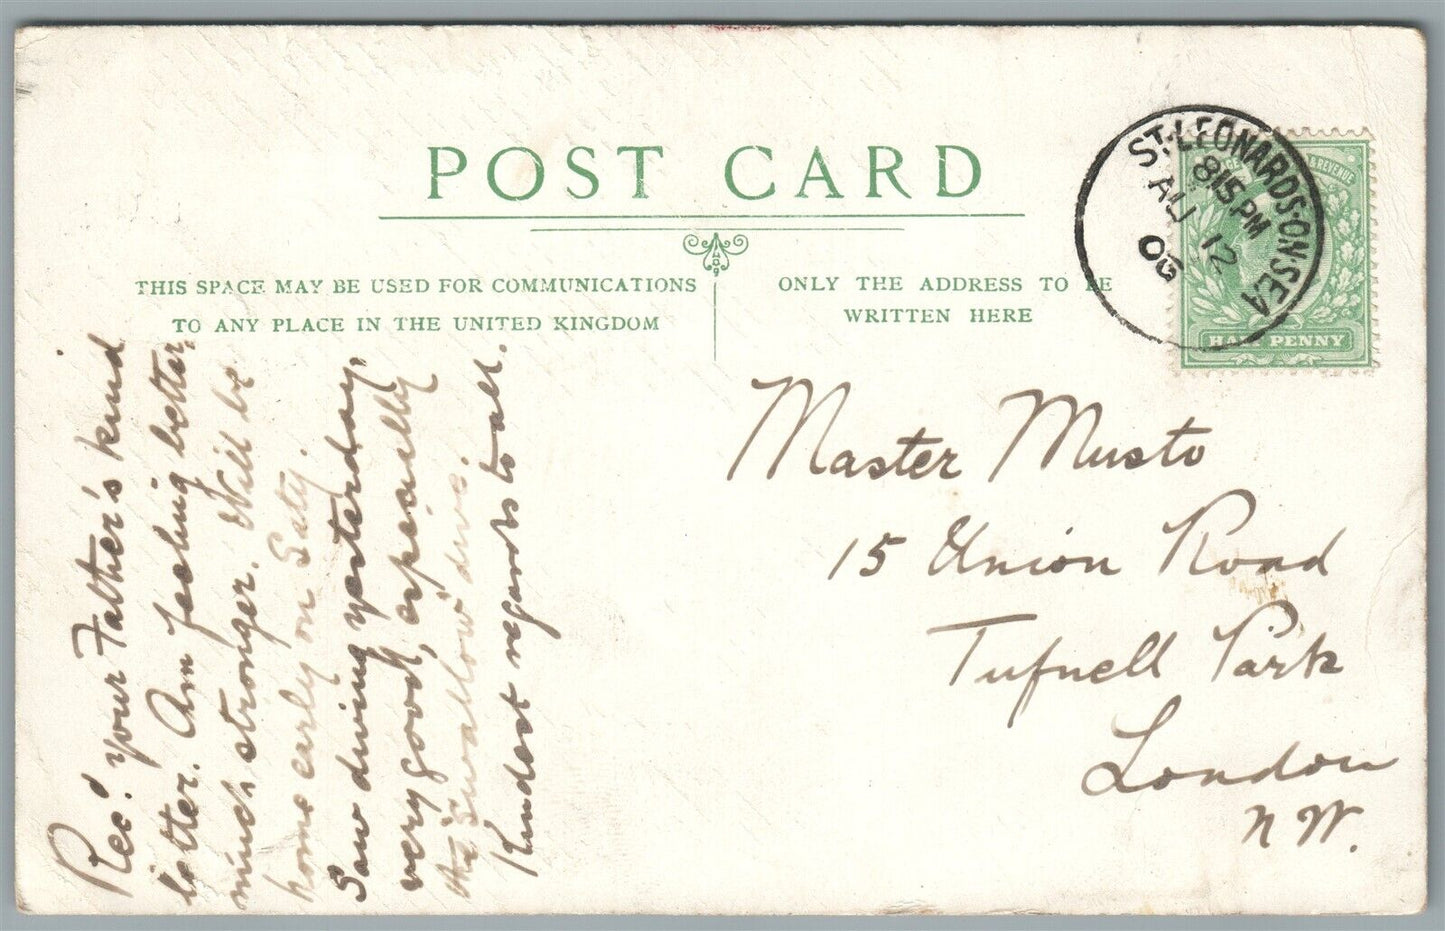 POST CARD
THIS SPACE MAY BE USED FOR COMMUNICATIONS
TO ANY PLACE IN THE UNITED KINGDOM
ONLY THE ADDRESS TO BE
WRITTEN HERE
ST. LEONARDS-ON SEA
8 15 PM
AU 12
06
& REVENUE
HALF PENNY
Master Musto
15 Union Road
Tufnell Park
London
N W.
Rec'd your Father's kind
letter. Am feeling better,
much stronger. Will be
home early on Saty.
Saw diving yesterday,
very good, especially
the "Swallow dive".
Kindest regards to all.